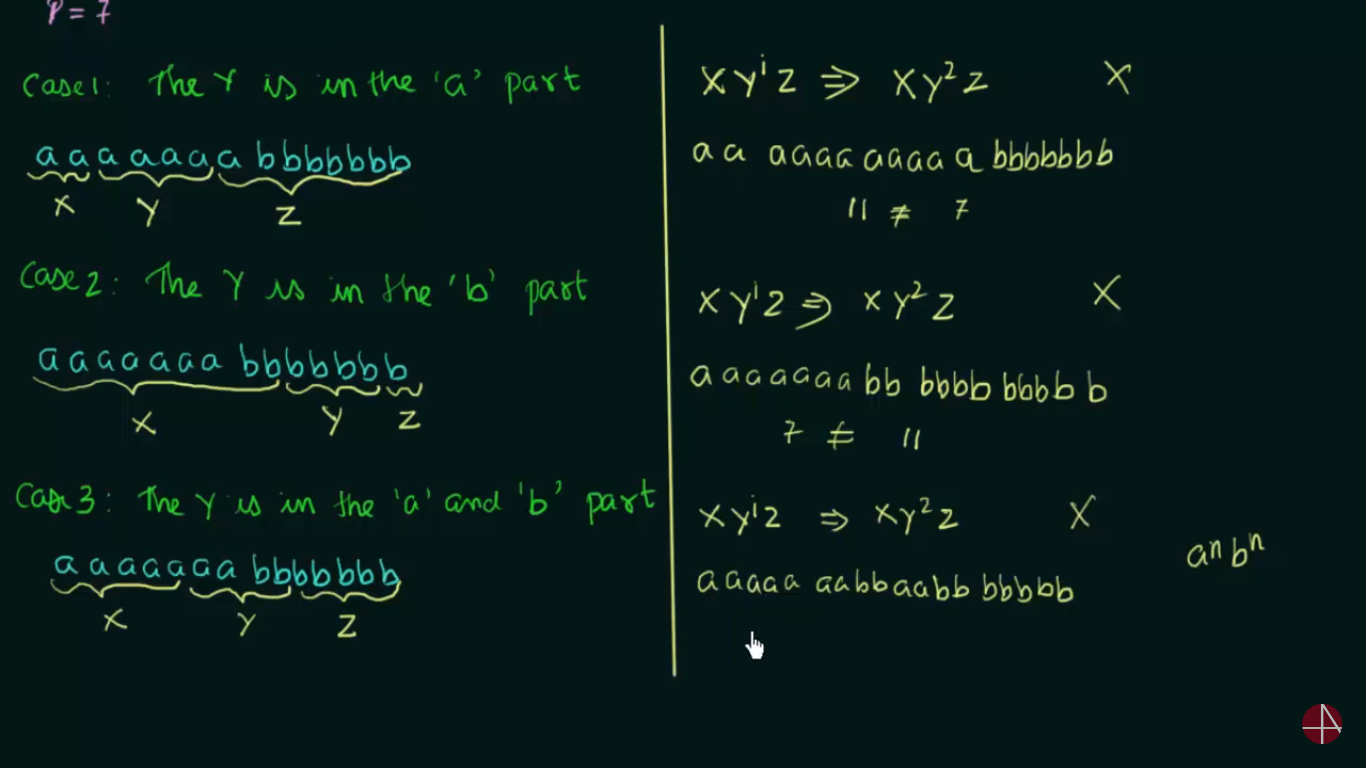 P = 7
Case 1: The Y is in the 'a' part
a a a a a a a b b b b b b b
X Y Z
Case 2: The Y is in the 'b' part
a a a a a a a b b b b b b b
X Y Z
Case 3: The Y is in the 'a' and 'b' part
a a a a a a a b b b b b b b
X Y Z
X Yⁱ Z ⇒ X Y² Z X
a a aaaa aaaa a bbbbbbb
11 ≠ 7
X Yⁱ Z ⇒ X Y² Z X
a a a a a a a bb bbbb bbbb b
7 ≠ 11
X Yⁱ Z ⇒ X Y² Z X
aⁿ bⁿ
a a a a a aabbaabb bbbbb